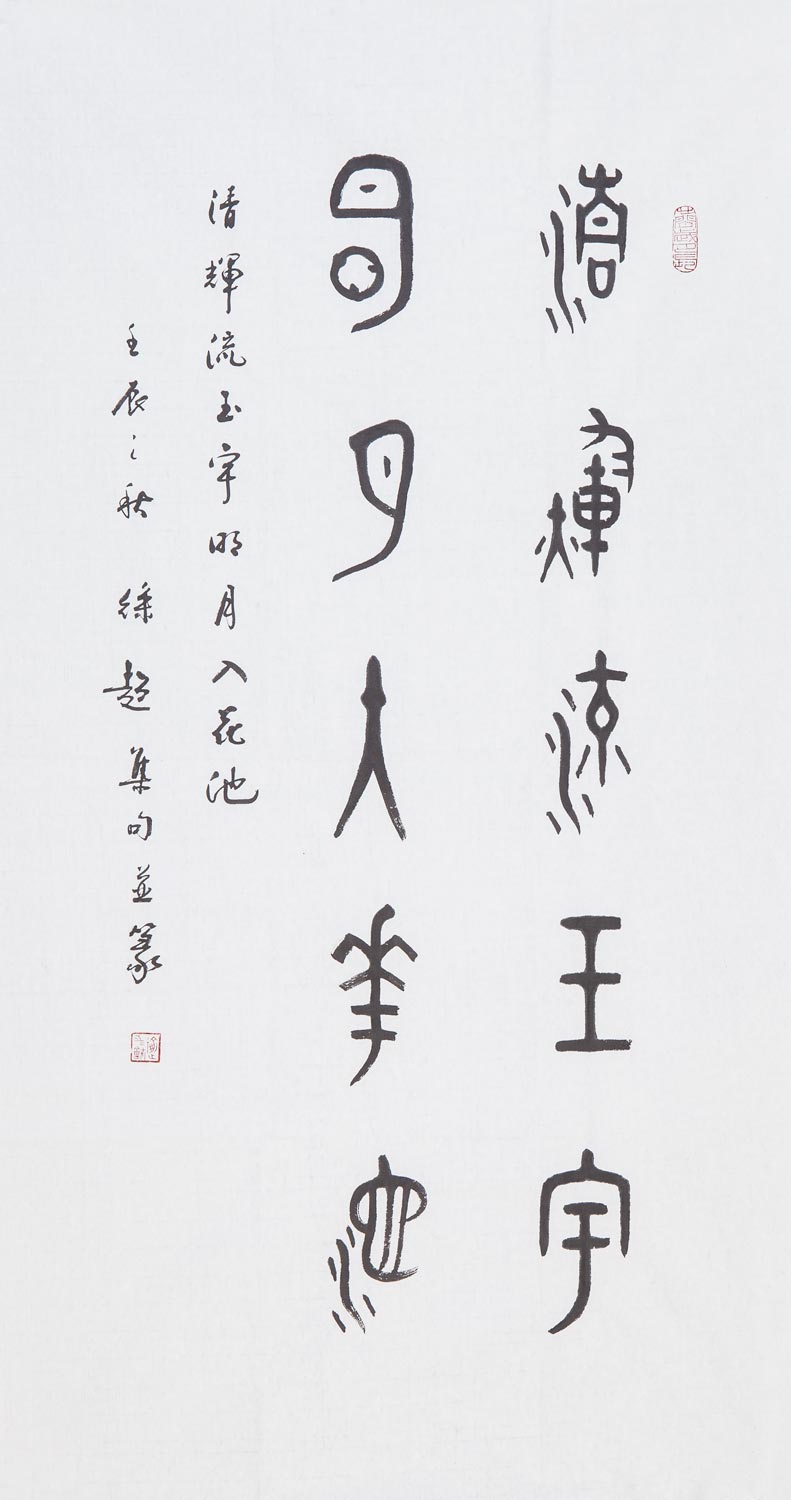 清輝流玉宇
明月入華池
清輝流玉宇明月入花池
壬辰之秋 徐超集句並篆